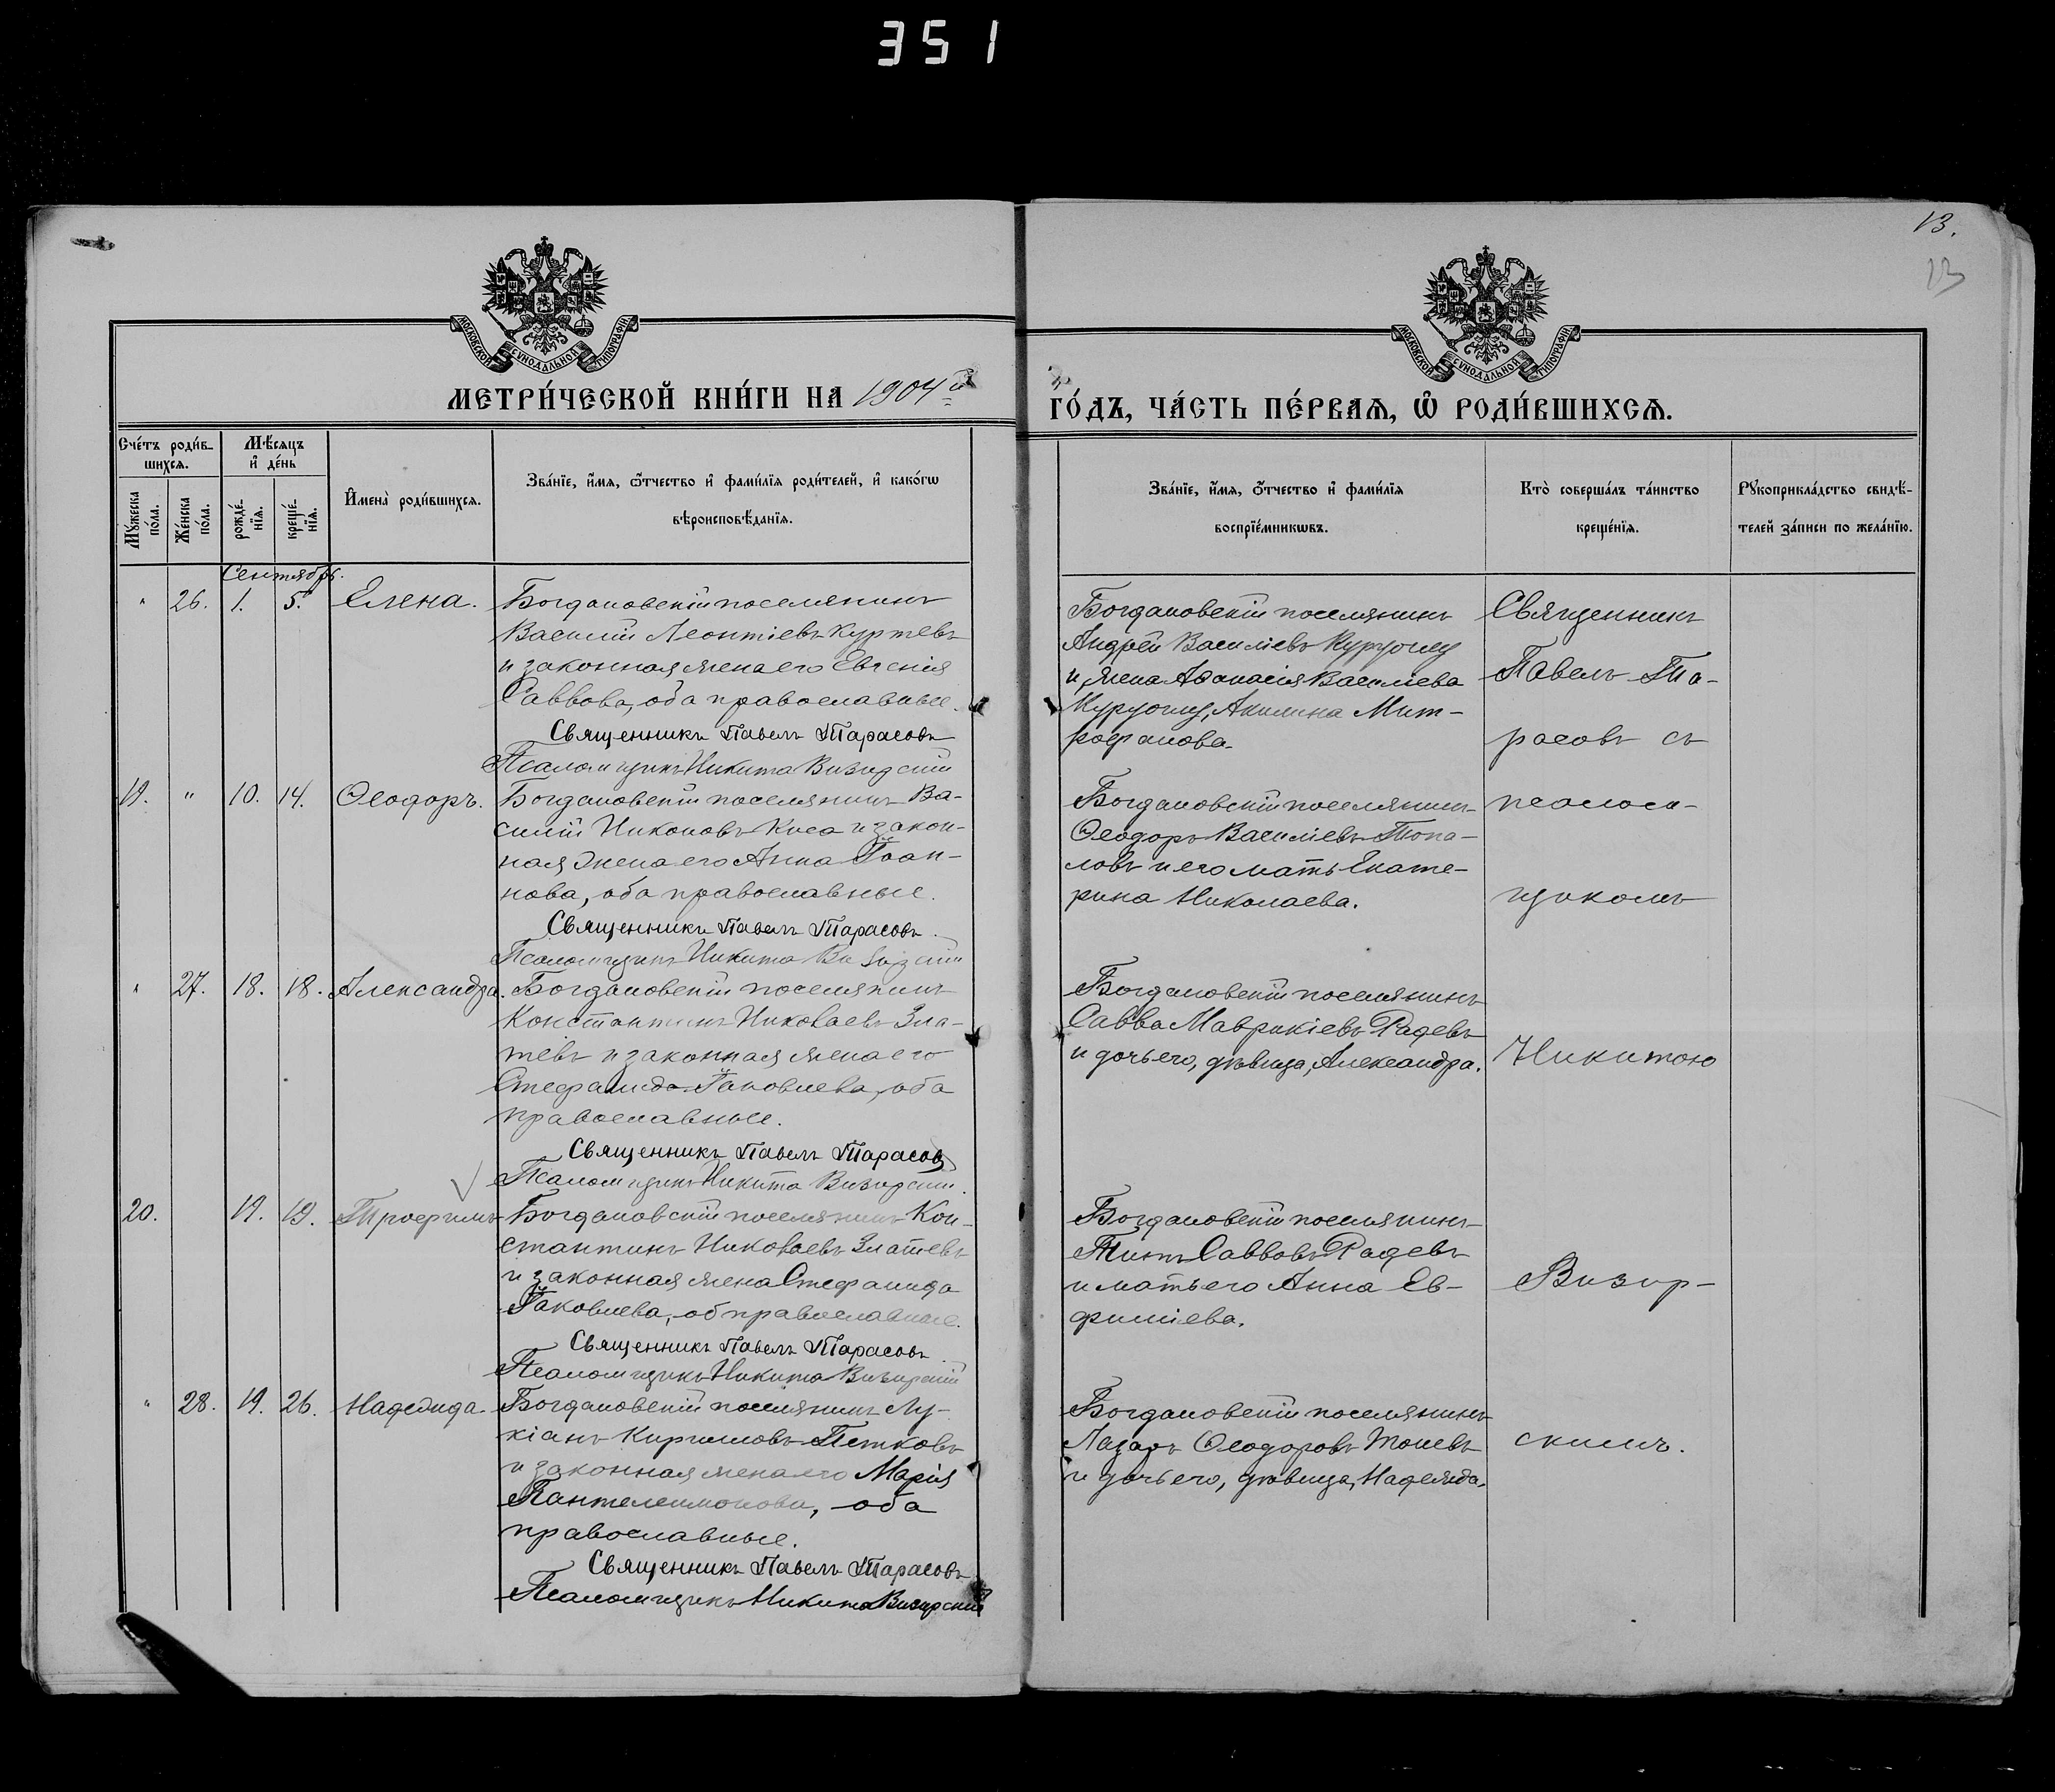 351
13.
13
МОСКОВСКОЙ СѴНОДАЛЬНОЙ ТИПОГРАФІИ
МОСКОВСКОЙ СѴНОДАЛЬНОЙ ТИПОГРАФІИ
МЕТРИ́ЧЕСКОЙ КНИ́ГИ НА 1904й
ГО́ДЪ, ЧА́СТЬ ПЕ́РВАѦ, Ѡ҆ РОДИ́ВШИХСѦ.
Сче́тъ роди́в-
шихсѧ.
Мѣ́сяцъ
и҆ де́нь
Мꙋ́жеска по́ла.
Же́нска по́ла.
рожде́-нїѧ.
креще́-нїѧ.
И҆мена̀ роди́вшихсѧ.
Зва́нїе, и҆́мѧ, ѻ҆́тчество и҆ фами́лїѧ роди́телей, и҆ како́гѡ
вѣроисповѣ́данїѧ.
Зва́нїе, и҆́мѧ, ѻ҆́тчество и҆ фами́лїѧ
воспрїе́мникѡвъ.
Кто̀ соверша́лъ та́инство
креще́нїѧ.
Рꙋкоприкла́дство свидѣ́-
телей за́писи по жела́нїю.
Сентябрь.
" 26. 1. 5. Елена.
Богдановскій поселянинъ
Василій Леонтіевъ Куртевъ
и законная жена его Евгенія
Саввова, оба православные.
Священникъ Павелъ Тарасовъ
Псаломщикъ Никита Визирскій
Богдановскій поселянинъ
Андрей Василіевъ
и жена Афанасія Василева
Акилина Мит-
рофанова.
19. " 10. 14. Ѳеодоръ.
Богдановскій поселянинъ Ва-
силій Никоновъ Киса и закон-
ная жена его Анна Іоан-
нова, оба православные.
Священникъ Павелъ Тарасовъ.
Псаломщикъ Никита Визирскій
Богдановскій поселянинъ
Ѳеодоръ Василіевъ Топа-
ловъ и его мать Екате-
рина Николаева.
" 27. 18. 18. Александра.
Богдановскій поселянинъ
Константинъ Николаевъ Зла-
тевъ и законная жена его
Стефанида Іаковлева, оба
православные.
Священникъ Павелъ Тарасовъ
Псаломщикъ Никита Визирскій.
Богдановскій поселянинъ
Савва Маврикіевъ Радевъ
и дочь его, дѣвица, Александра.
20. 19. 19. Трофимъ
Богдановскій поселянинъ Кон-
стантинъ Николаевъ Златевъ
и законная жена Стефанида
Іаковлева, об православные.
Священникъ Павелъ Тарасовъ.
Псаломщикъ Никита Визирскій
Богдановскій поселянинъ
Титъ Саввовъ Радевъ
и мать его Анна Ев-
фиміева.
" 28. 19. 26. Надежда.
Богдановскій поселянинъ Лу-
кіанъ Кирилловъ Петковъ
и законная жена его Марія
Пантелеимонова, оба
православные.
Священникъ Павелъ Тарасовъ
Псаломщикъ Никита Визирскій
Богдановскій поселянинъ
Лазарь Ѳеодоровъ Тоневъ
и дочь его, дѣвица, Надежда.
Священникъ
Павелъ Та-
расовъ съ
псалом-
щикомъ
Никитою
Визир-
скимъ.